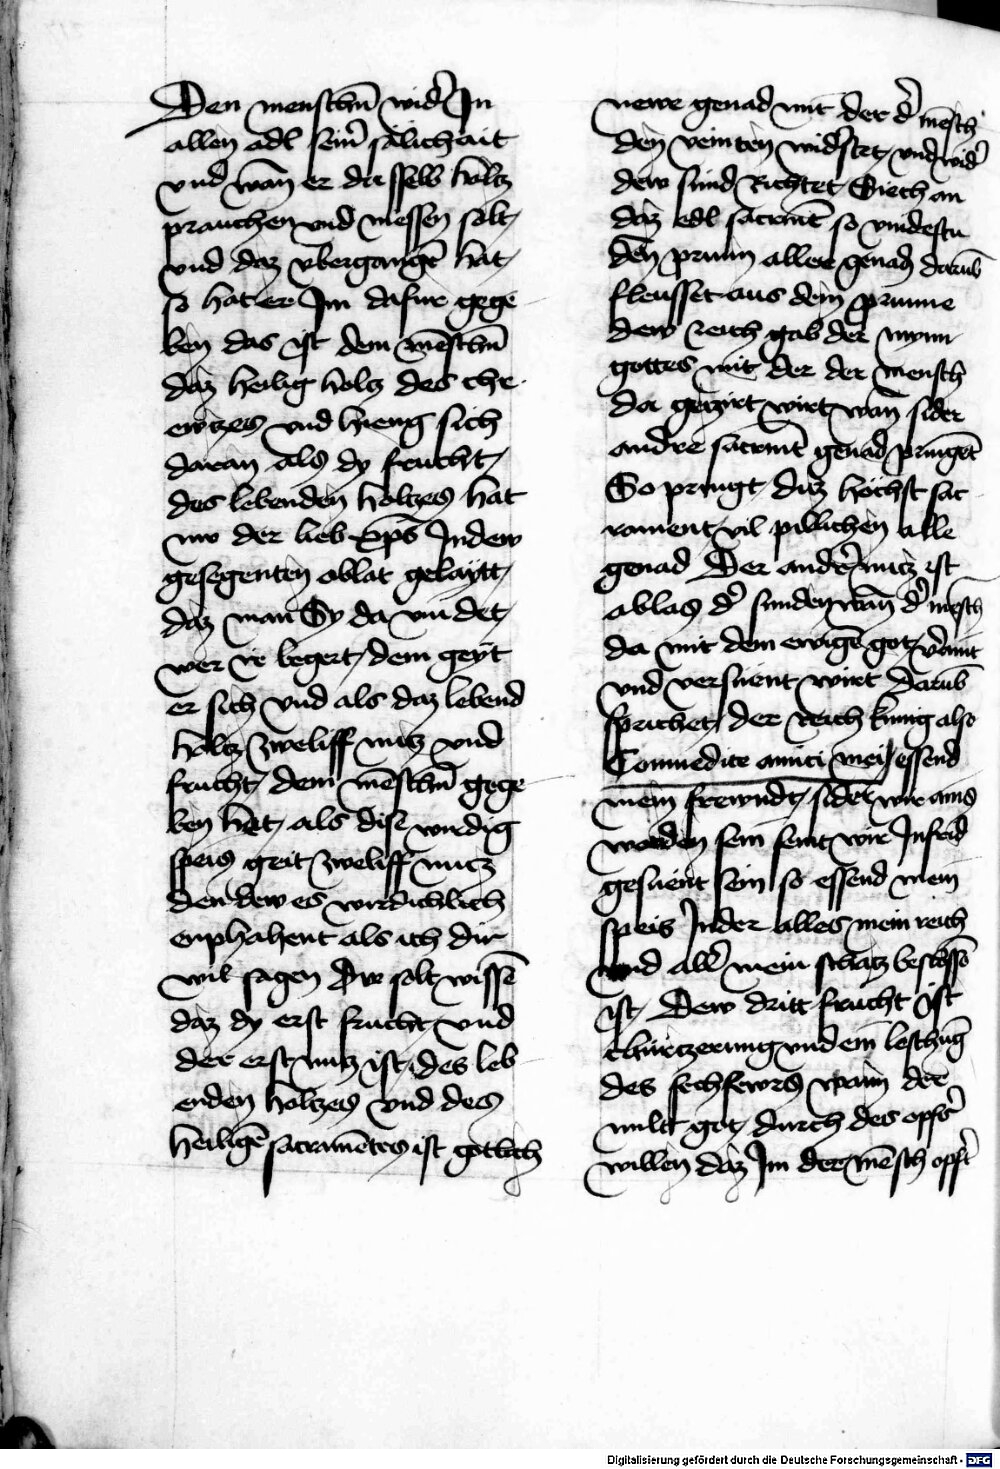 Den menschn̄ wid̄ In
allen adl sein̄ sälichait
vnd wan̄ er daſſelb holtz
prauchen vnd niessen solt
vnd daz vbergangē hat
so hat er Im dafur gege
ben das ist dem mēschn̄
daz heilig holtz des chr
ewtzes vnd hieng sich
daran als dy frucht
des lebenden holtzes hat
nw der lieb xp̄s In dew
gesegenten oblat gelaytt
daz man Sy da vindet
wer ir begert dem geyt
er sich vnd als daz lebend
holtz zweliff nutz vnd
frucht dem mēschn̄ gege
ben hat als dise wirdig
speis geit zweliff nutz
den dew es wirdichleich
enphahent als ich dir
wil sagen Dw solt wissē
daz dy erst frucht vnd
der erst nutz ist des leb
enden holtzes vnd des
heiligē sacramētes ist gotleich
newe genad mit der d̄ mēsch
den veinten widstet vnd wid̄
dew sund Richtet Siech an
daz edl sacramēt so vindestu
den prunn aller genad darūb
fleusset aus dem prunne
dew reich gab der mynn
gottes mit der der mensch
da geziret wirt wan̄ sider
andre sacramēt genad pringēt
So pringt daz höchst sac
rament vil pillichen alle
genad Der ander nutz ist
ablas d̄ sunden wan̄ d̄ mēsch
da mit dem ewigē got v̄aint
vnd versüent wirt Darūb
sprichet der Reich kunig also
Commedite amici mei essend
mein frewndt sider wir ains
worden sein seint wir In frid
gesüent sein so essend mein
speis In der alles mein reich
vnd all mein schatz beslossē
ist Dew dritt frucht ist
churtzerung vnd ein leschūg
des fechfewrs wann der
milt got durch des opfs̄
willen daz Im der mēsch opft̄
Digitalisierung gefördert durch die Deutsche Forschungsgemeinschaft - DFG